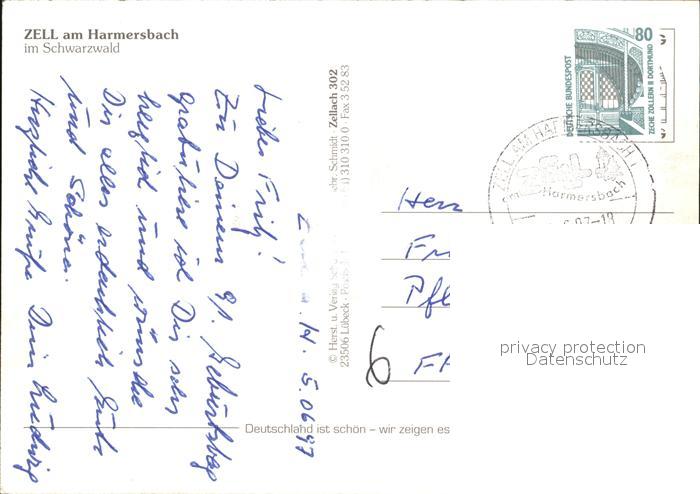 ZELL am Harmersbach
im Schwarzwald
Z H. 5.06.97
Lieber Fritz!
Zu Deinem 91. Geburtstag
gratuliere ich Dir sehr
herzlich und wünsche
Dir alles erdenklich Gute
und Schöne.
Herzliche Grüße Dein Ludwig
Schmidt · Zellach 302
310 310 0 · Fax 3 52 83
© Herst. u. Verlag
23506 Lübeck ·
Deutschland ist schön – wir zeigen es
80
DEUTSCHE BUNDESPOST
ZECHE ZOLLERN II DORTMUND
ZELL AM HARMERSBACH
Zell
am Harmersbach
6.97-18
Herr
Fr
Pfl
6
privacy protection
Datenschutz